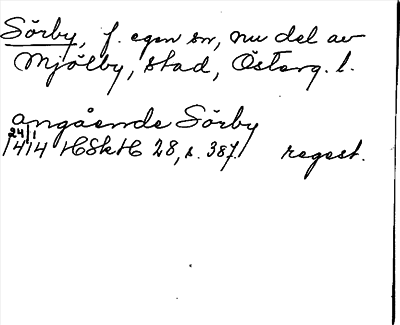 Sörby, f. egen sn, nu del av
Mjölby, stad, Österg. l.
angående Sörby
24/1
1414 HSkH 28, s. 387. regest.